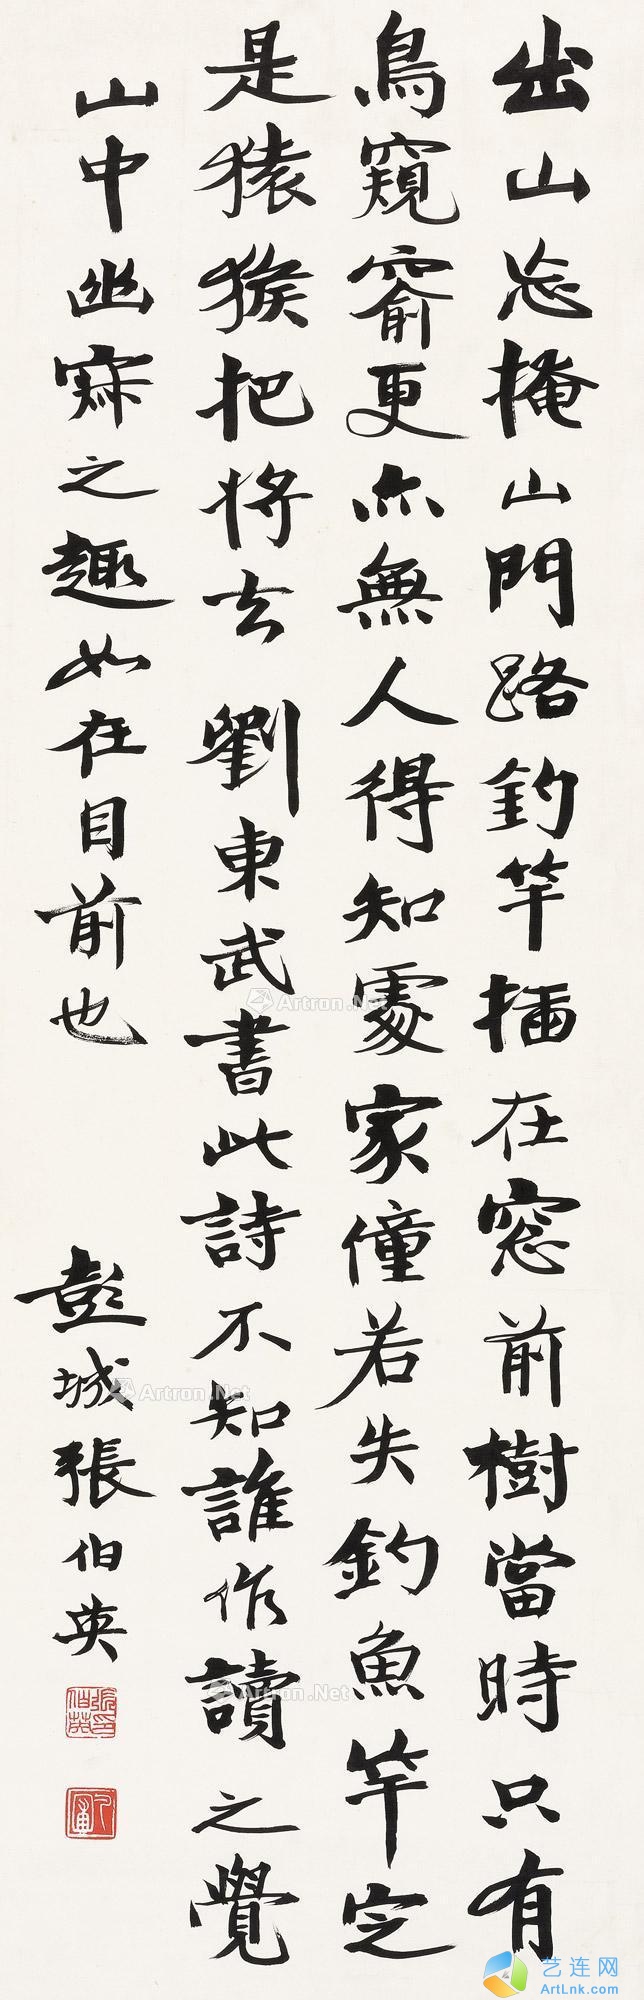 出山忘掩山門路釣竿插在窓前樹當時只有
鳥窺窬更亦無人得知處家僮若失釣魚竿定
是猿猴把將去 劉東武書此詩不知誰作讀之覺
山中幽寂之趣如在目前也
彭城張伯英
Artron.Net
Artron.Net
Artron.Net
艺连网
ArtLnk.com